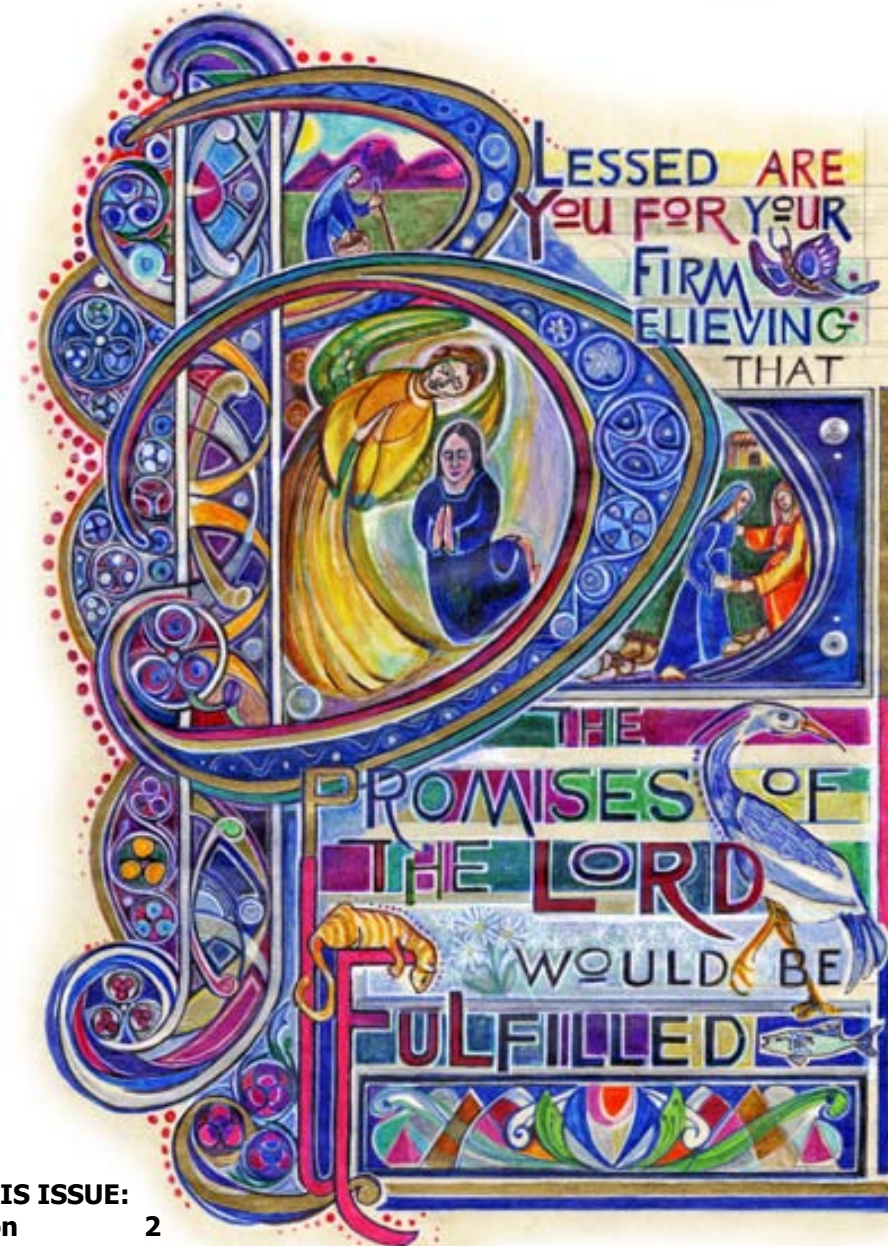 BLESSED ARE
YOU FOR YOUR
FIRM
ELIEVING
THAT
THE
PROMISES OF
THE LORD
WOULD BE
FULFILLED
IS ISSUE:
on 2